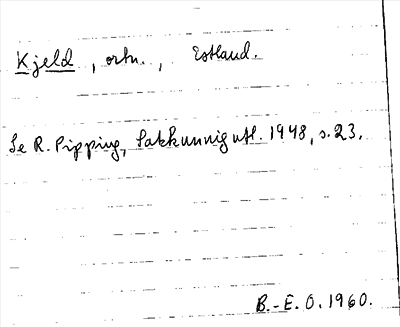 Kjeld, ortn., Estland.
Se R. Pipping, Sakkunnigutl. 1948, s. 23.
B.-E. O. 1960.